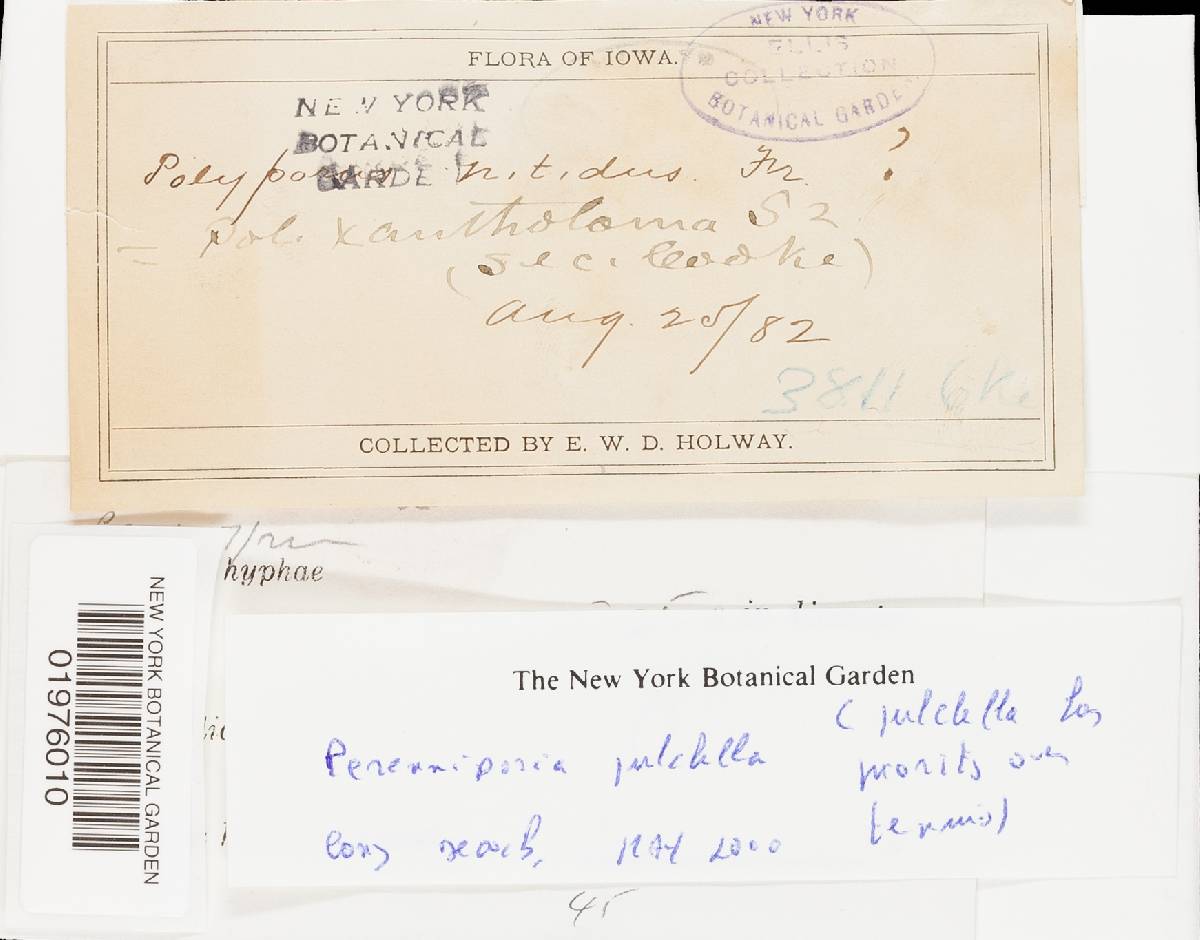 FLORA OF IOWA.
NEW YORK
ELLIS
COLLECTION
BOTANICAL GARDEN
NEW YORK
BOTANICAL
GARDE
Polyporus nitidus. Fr. ?
= Pol. Xantholoma S z
(sec. Cooke)
Aug. 25/82
3811 Cke
COLLECTED BY E. W. D. HOLWAY.
hyphae
NEW YORK BOTANICAL GARDEN
01976010
The New York Botanical Garden
Perenniporia pulchella
( pulchella has
priority over
tenuis)
May 2000
45